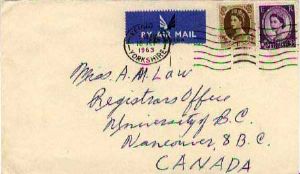 BY AIR MAIL
1963
YORKSHIRE
Miss. A. M. Law
Registrars Office
University of B.C.
Vancouver, 8 B.C.
CANADA